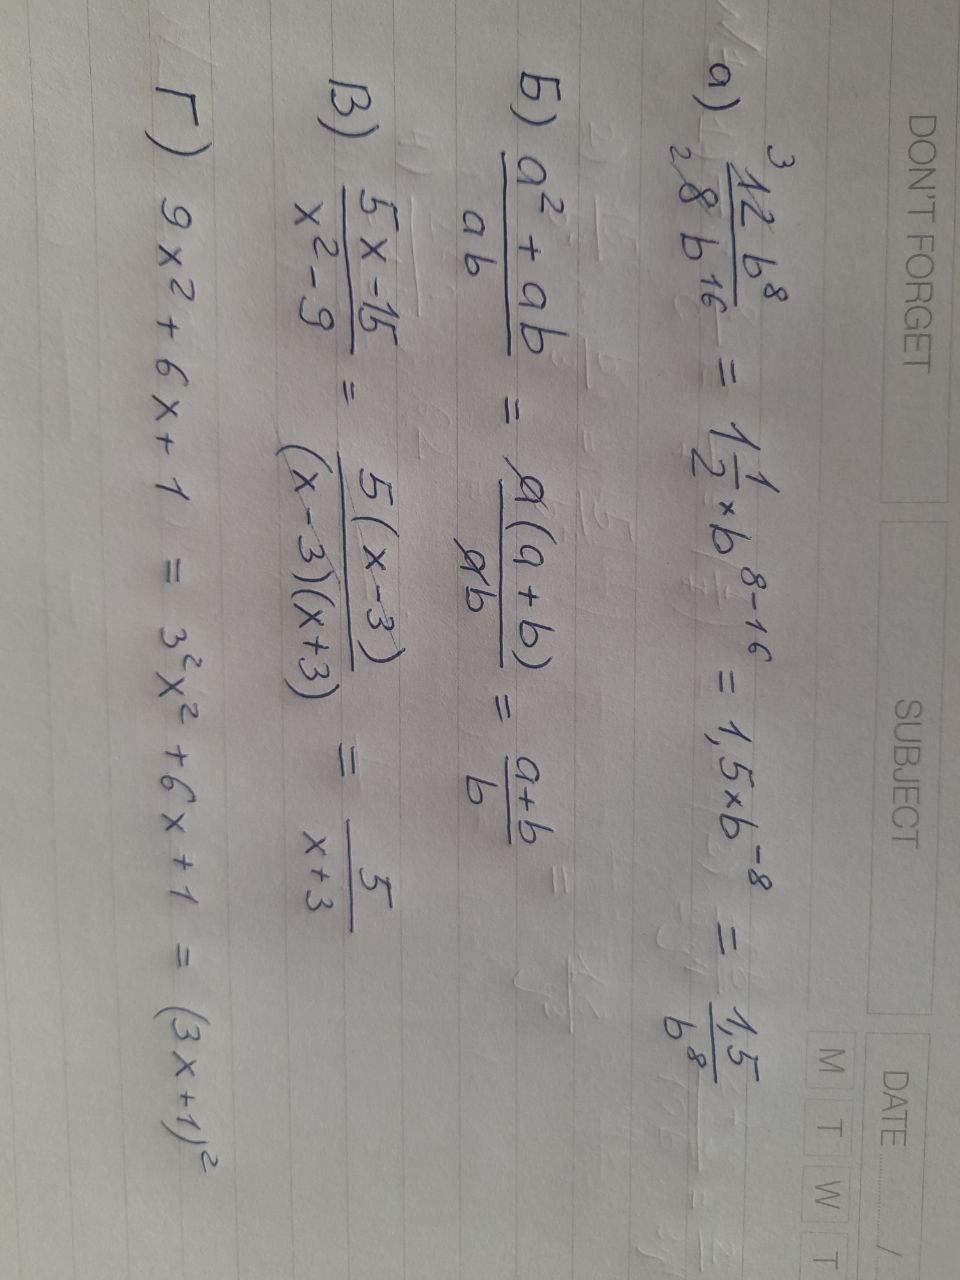 DON'T FORGET SUBJECT DATE ............/
M T W T
а) ³12 b⁸ / ₂8 b¹⁶ = 1 1/2 × b⁸⁻¹⁶ = 1,5 × b⁻⁸ = 1,5 / b⁸
Б) a² + ab / ab = a(a + b) / ab = a+b / b
В) 5x - 15 / x² - 9 = 5(x - 3) / (x - 3)(x + 3) = 5 / x + 3
Г) 9x² + 6x + 1 = 3²x² + 6x + 1 = (3x + 1)²